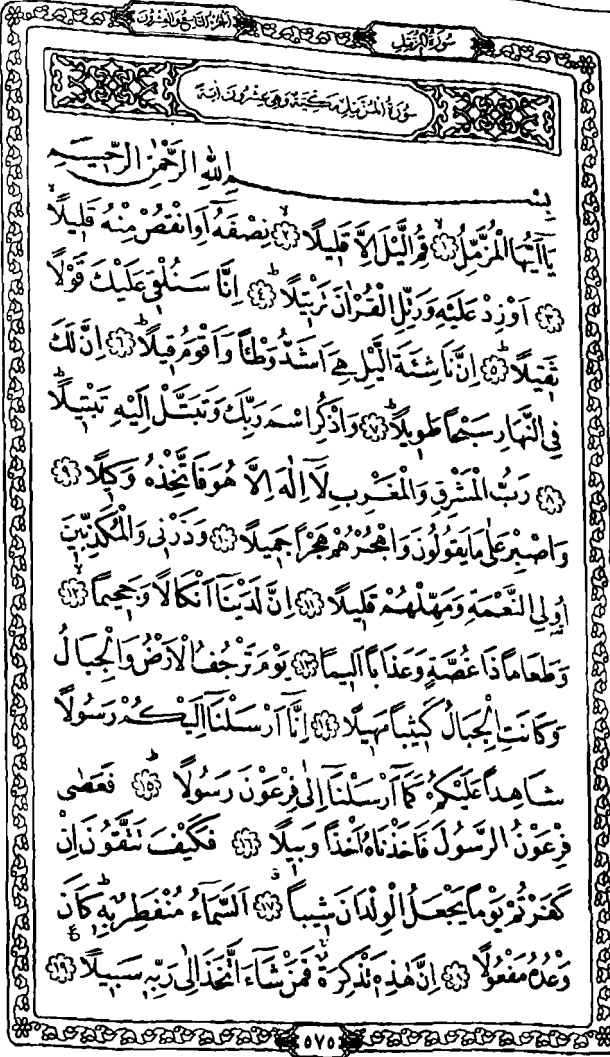 سُورَةُ الْمُزَّمِّلِ
اَلْجُزْءُ التَّاسِعُ وَالْعِشْرُونَ
سُورَةُ الْمُزَّمِّلِ مَكِّيَّةٌ وَهِيَ عِشْرُونَ اٰيَةً
بِسْمِ اللّٰهِ الرَّحْمٰنِ الرَّحِيمِ
يَآ اَيُّهَا الْمُزَّمِّلُ ﴿١﴾ قُمِ الَّيْلَ اِلَّا قَلِيلًا ﴿٢﴾ نِصْفَهُٓ اَوِ انْقُصْ مِنْهُ قَلِيلًا
﴿٣﴾ اَوْ زِدْ عَلَيْهِ وَرَتِّلِ الْقُرْاٰنَ تَرْتِيلًا ﴿٤﴾ اِنَّا سَنُلْقِي عَلَيْكَ قَوْلًا
ثَقِيلًا ﴿٥﴾ اِنَّ نَاشِئَةَ الَّيْلِ هِيَ اَشَدُّ وَطْئًا وَاَقْوَمُ قِيلًا ﴿٦﴾ اِنَّ لَكَ
فِي النَّهَارِ سَبْحًا طَوِيلًا ﴿٧﴾ وَاذْكُرِ اسْمَ رَبِّكَ وَتَبَتَّلْ اِلَيْهِ تَبْتِيلًا
﴿٨﴾ رَبُّ الْمَشْرِقِ وَالْمَغْرِبِ لَآ اِلٰهَ اِلَّا هُوَ فَاتَّخِذْهُ وَكِيلًا ﴿٩﴾
وَاصْبِرْ عَلٰى مَا يَقُولُونَ وَاهْجُرْهُمْ هَجْرًا جَمِيلًا ﴿١٠﴾ وَذَرْنِي وَالْمُكَذِّبِينَ
اُولِي النَّعْمَةِ وَمَهِّلْهُمْ قَلِيلًا ﴿١١﴾ اِنَّ لَدَيْنَآ اَنْكَالًا وَجَحِيمًا ﴿١٢﴾
وَطَعَامًا ذَا غُصَّةٍ وَعَذَابًا اَلِيمًا ﴿١٣﴾ يَوْمَ تَرْجُفُ الْاَرْضُ وَالْجِبَالُ
وَكَانَتِ الْجِبَالُ كَثِيبًا مَهِيلًا ﴿١٤﴾ اِنَّآ اَرْسَلْنَآ اِلَيْكُمْ رَسُولًا
شَاهِدًا عَلَيْكُمْ كَمَآ اَرْسَلْنَآ اِلٰى فِرْعَوْنَ رَسُولًا ﴿١٥﴾ فَعَصٰى
فِرْعَوْنُ الرَّسُولَ فَاَخَذْنَاهُ اَخْذًا وَبِيلًا ﴿١٦﴾ فَكَيْفَ تَتَّقُونَ اِنْ
كَفَرْتُمْ يَوْمًا يَجْعَلُ الْوِلْدَانَ شِيبًا ﴿١٧﴾ اَلسَّمَآءُ مُنْفَطِرٌ بِهٖ كَانَ
وَعْدُهُ مَفْعُولًا ﴿١٨﴾ اِنَّ هٰذِهٖ تَذْكِرَةٌ فَمَنْ شَآءَ اتَّخَذَ اِلٰى رَبِّهٖ سَبِيلًا ﴿١٩﴾
٥٧٥